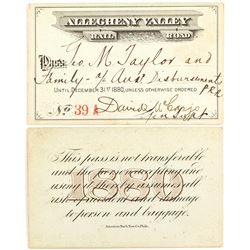 ALLEGHENY VALLEY
RAIL ROAD
Pass Geo. M. Taylor and
Family - of Aust Disbursement
P.R.R
UNTIL DECEMBER 31ST 1880, UNLESS OTHERWISE ORDERED
No 39 A David McCargo
Gen Supt
This pass is not transferable
and the person accepting and
using it thereby assumes all
risk of accident and damage
to person and baggage.
1880
American Bank Note Co. Phila.